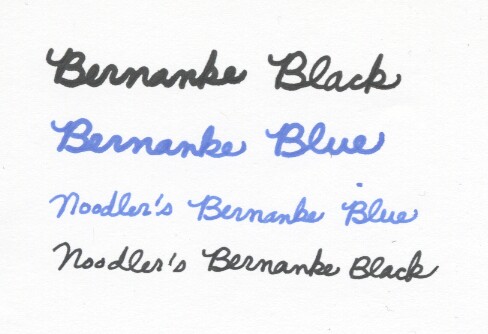 Bernanke Black
Bernanke Blue
Noodler's Bernanke Blue
Noodler's Bernanke Black